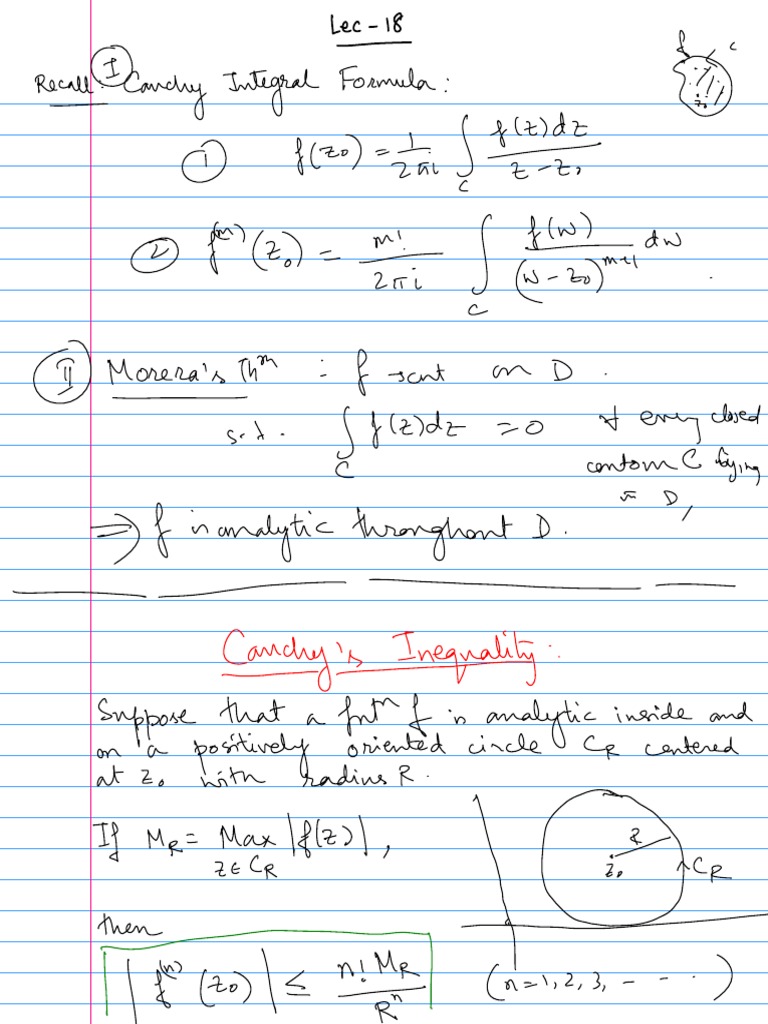 Lec - 18
f c
z₀
Recall. I Cauchy Integral Formula:
① f(z₀) = 1/2πi ∫_C f(z)dz / z - z₀
② f^(m)(z₀) = m!/2πi ∫_C f(w) / (w - z₀)^(m+1) dw
II Morera's Thm : f is cont on D.
s.t. ∫_C f(z)dz = 0 ∀ every closed
contour C lying
in D,
⇒ f is analytic throughout D.
Cauchy's Inequality:
Suppose that a fntn f is analytic inside and
on a positively oriented circle C_R centered
at z₀ with radius R.
If M_R = Max_{z∈C_R} |f(z)|,
R
z₀
C_R
then
|f^(n)(z₀)| ≤ n! M_R / R^n (n=1,2,3,- - - ·)